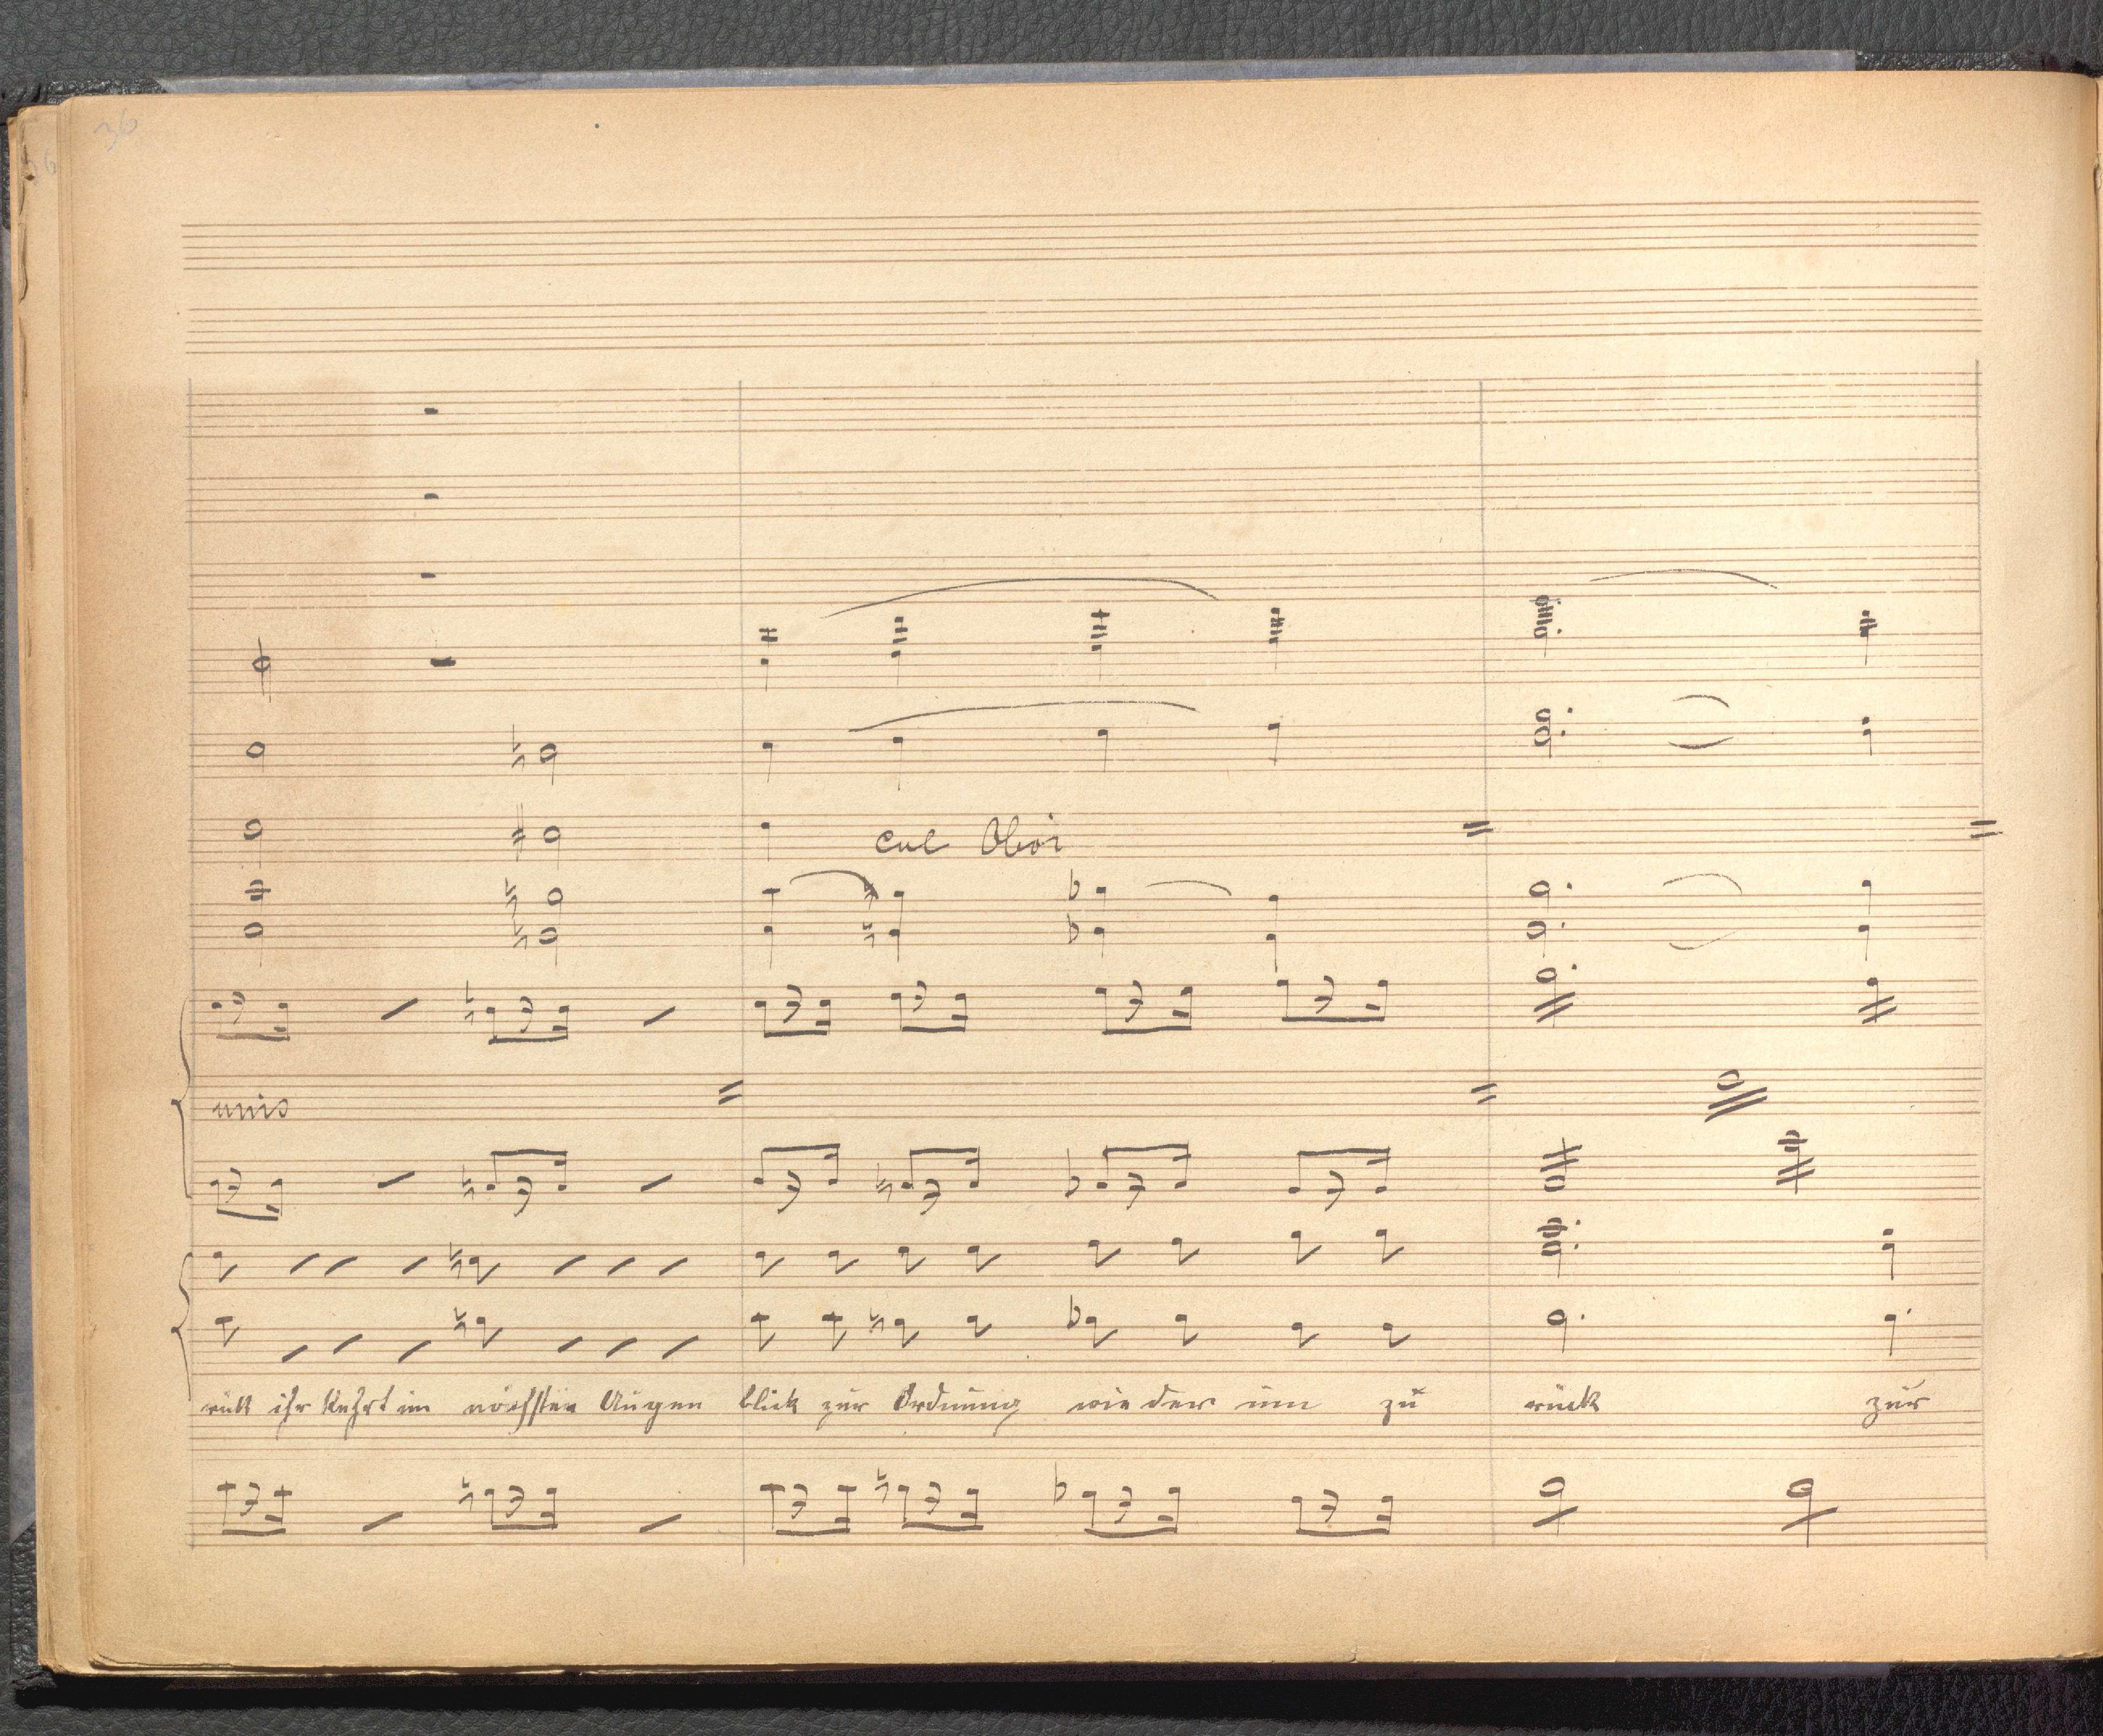 36
col Oboi
unis
rük ihr kehrt im nächsten Augen blick zur Ordnung wie der um zu rück zur